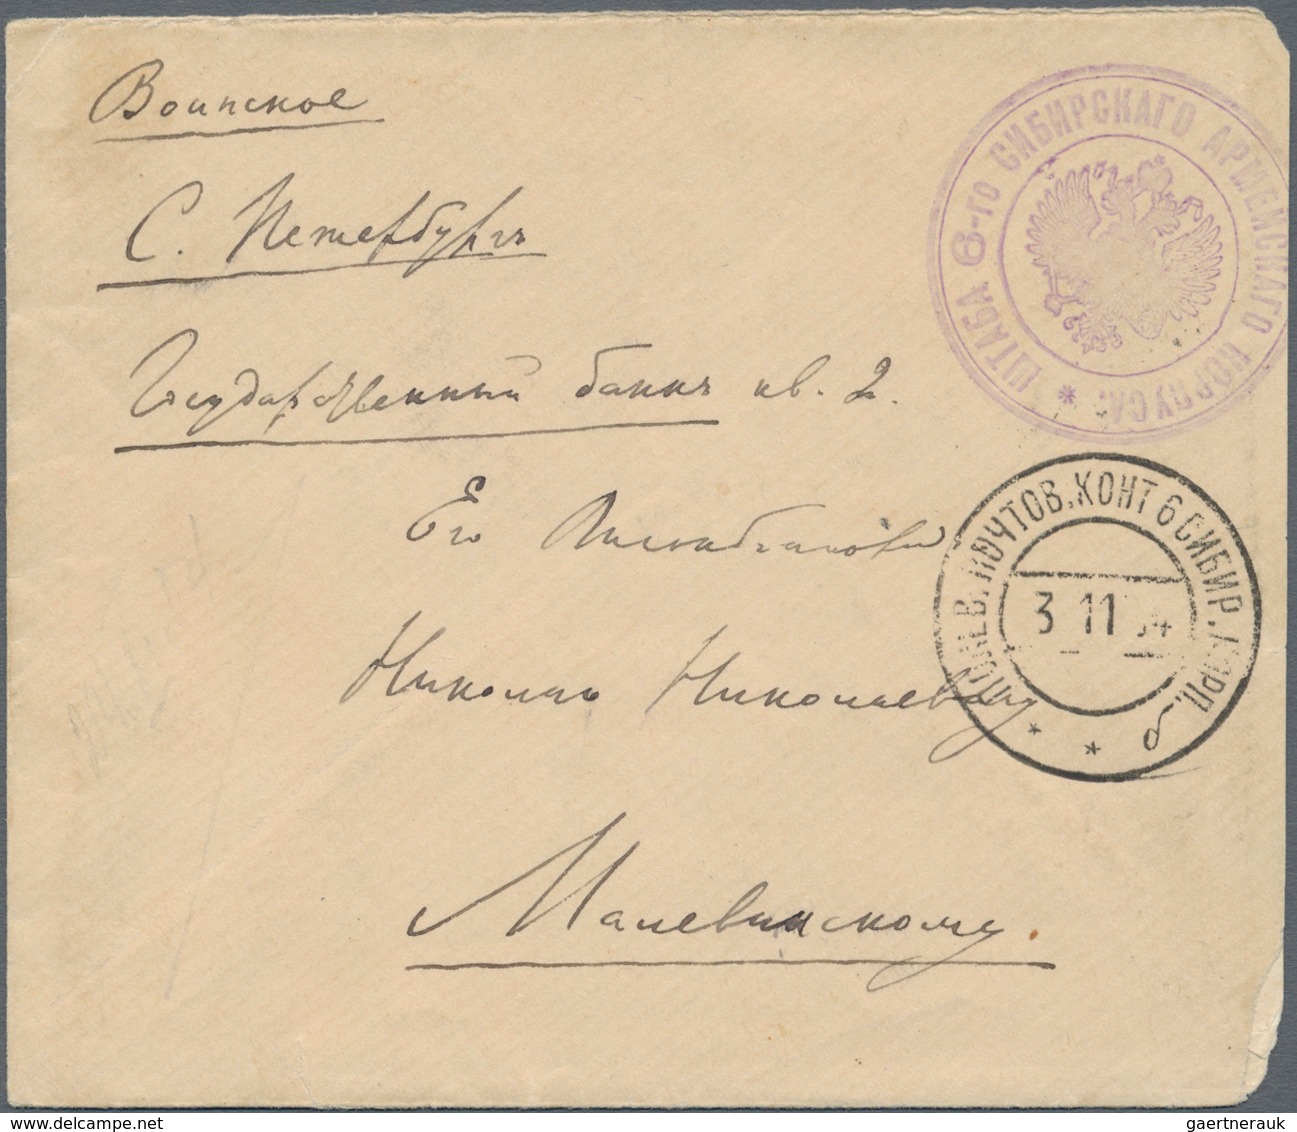 Воинское
С. Петербургъ
Государственный банкъ кв. 2.
Его
Николаю Николаевичу
Малевинскому.
ШТАБА 6-ГО СИБИРСКАГО АРМЕЙСКАГО КОРПУСА *
ПОЛЕВ. ПОЧТОВ. КОНТ 6 СИБИР. КОРП. б
3 11 04
delcampe.net
gaertnerauk